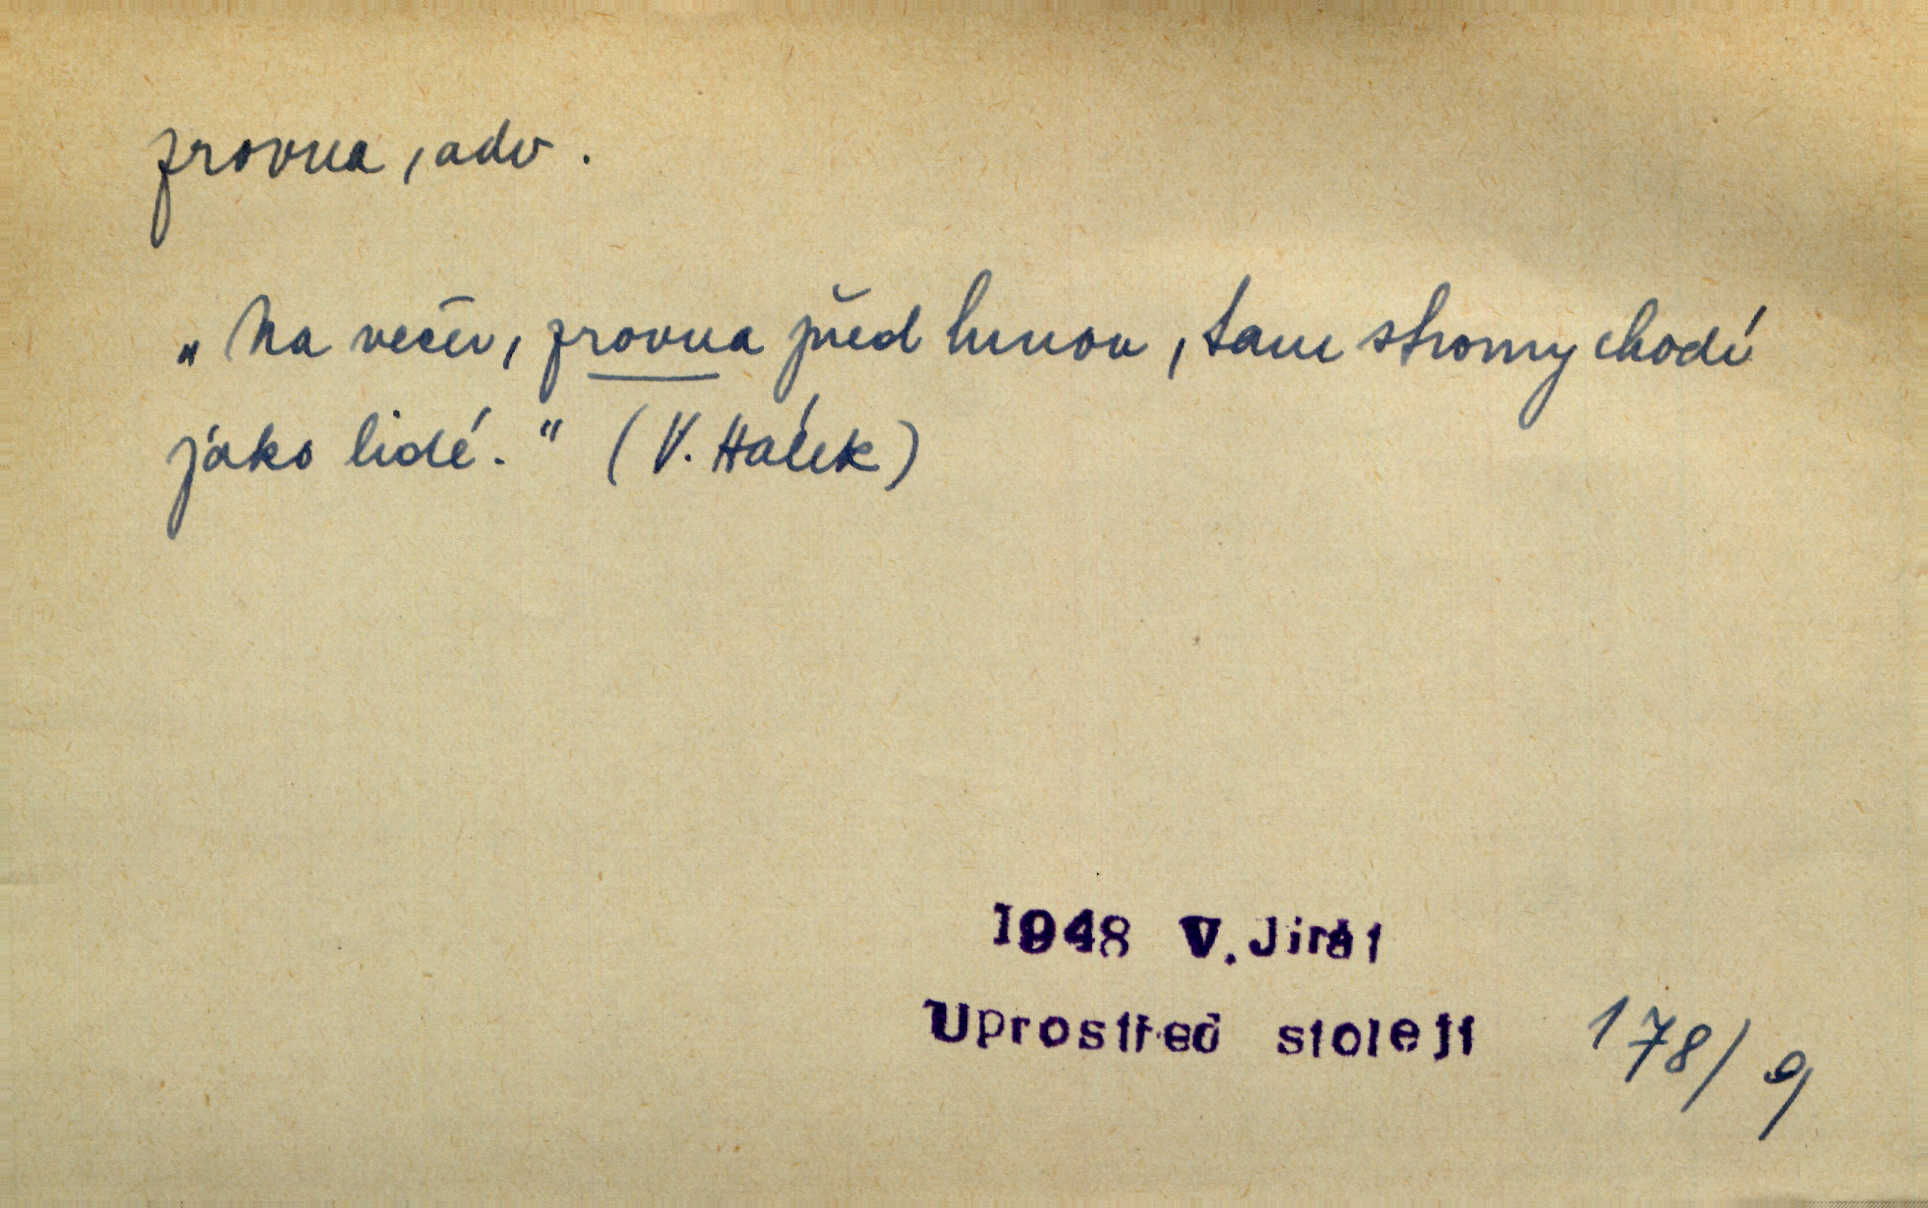 zrovna, adv.
„Na večer, zrovna před hrnou, tam stromy chodí
jako lidé.“ (V. Hálek)
1948 V. Jirát
Uprostřed století
178/9